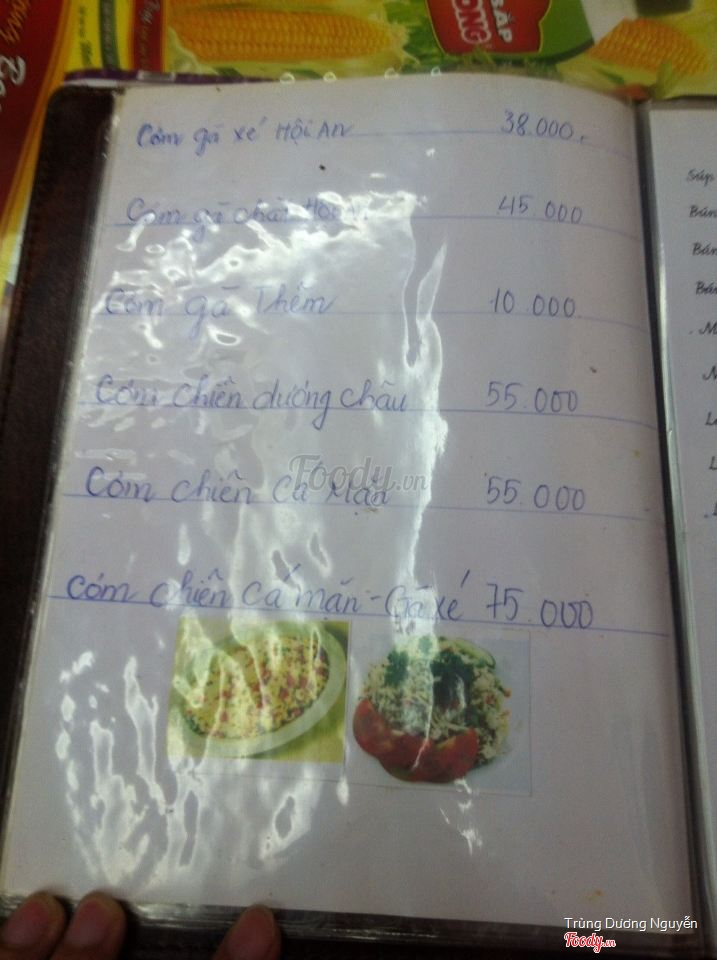 BẮP
Cơm gà xé Hội An 38.000,
Cơm gà chặt Hội An 45.000
Cơm gà Thêm 10.000
Cơm chiên dương châu 55.000
Cơm chiên Cá Mặn 55.000
Cơm chiên Cá mặn - Gà xé 75.000
Súp
Bún
Foody.vn
Trùng Dương Nguyễn
Foody.vn